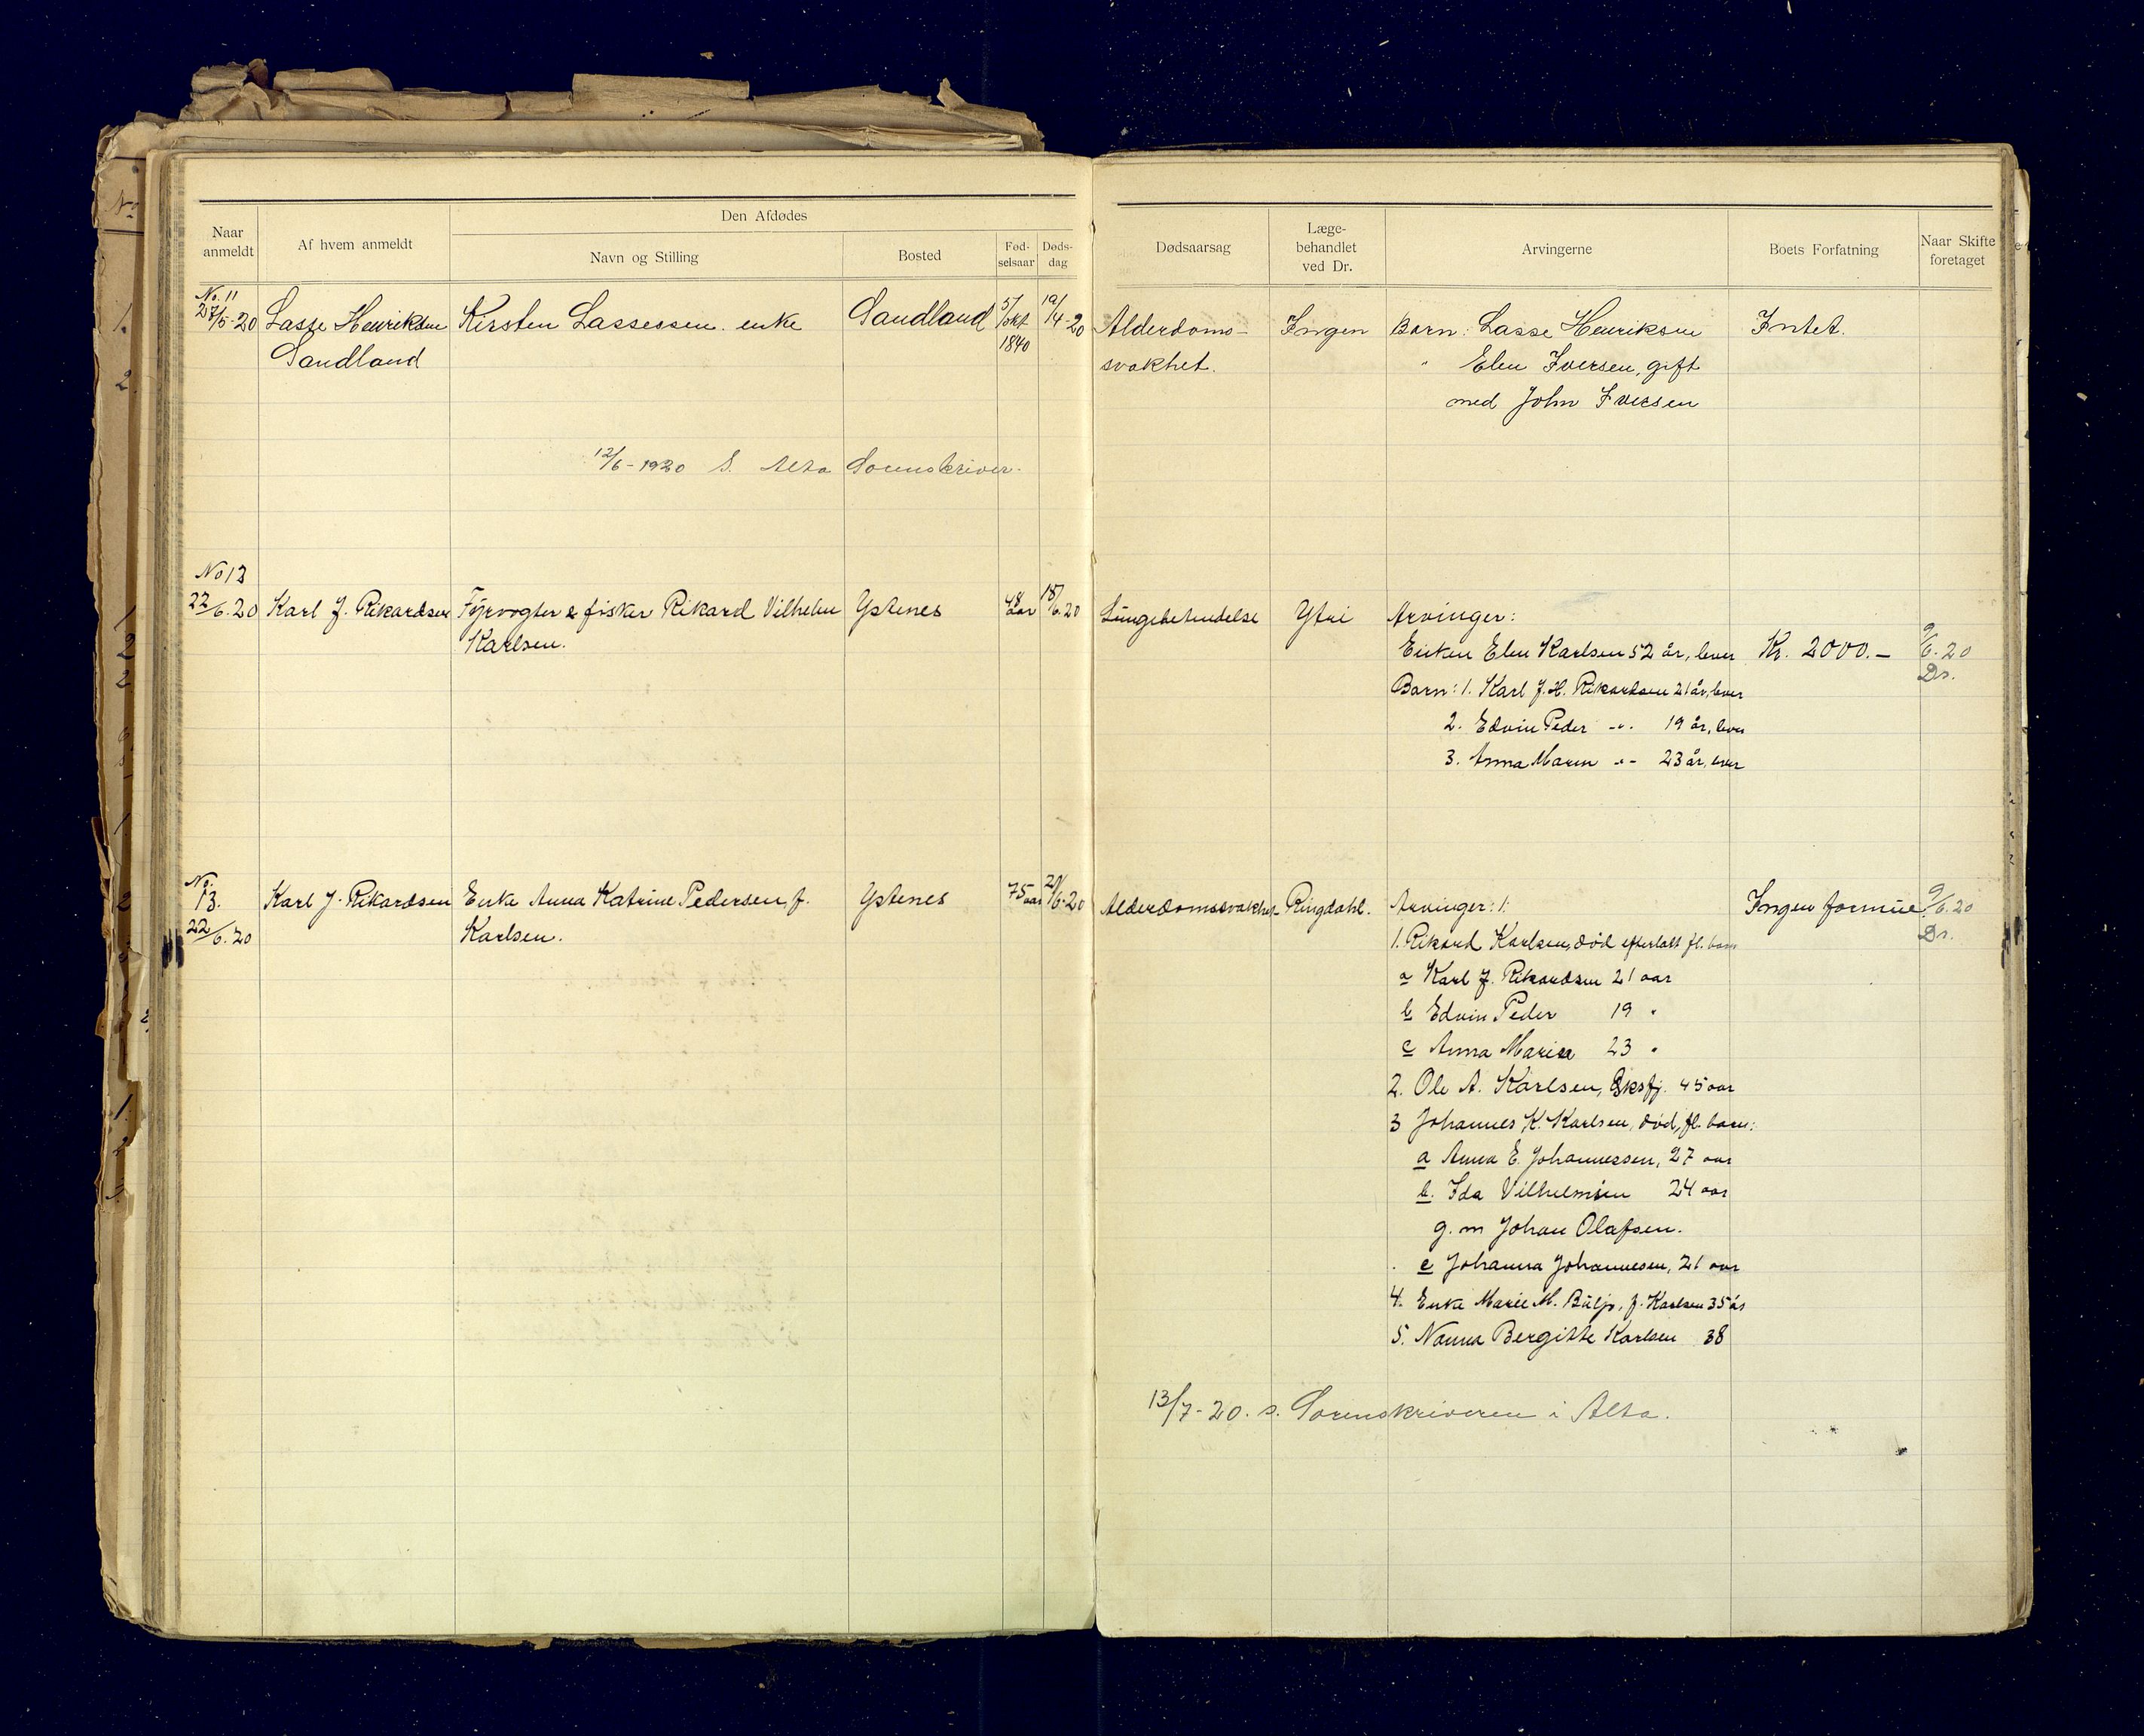 Den Afdødes
Naar anmeldt
Af hvem anmeldt
Navn og Stilling
Bosted
Fød-
selsaar
Døds-
dag
Dødsaarsag
Læge-
behandlet
ved Dr.
Arvingerne
Boets Forfatning
Naar Skifte
foretaget
No. 11
27/5-20 Lasse Henriksen Kirsten Lassessen enke Sandland 5/okt 1840 19/4-20 Alderdoms- Ingen Barn: Lasse Henriksen Intet.
Sandland svakhet. " Elen Iversen, gift
med John Iversen
12/6-1920 S. Alta Sorenskriver.
No 12
22/6.20 Karl J. Rikardsen Fyrvogter & fisker Rikard Vilhelm Ystenes 48 aar 18/6.20 Lungebetendelse Ytri Arvinger:
Karlsen. Enken Elen Karlsen 52 år, lever Kr. 2000.- 9/6.20
Barn: 1. Karl J. H. Rikardsen 21 år, lever Ds.
2. Edvin Peder -"- 19 år, lever
3. Anna Maren -"- 23 år, lever
No.
13. Karl J. Rikardsen Enke Anna Katrine Pedersen f. Ystenes 75 aar 20/6.20 Alderdomssvakhet Ringdahl. Arvinger: 1. Ingen formue 9/6.20
22/6.20 Karlsen. 1. Rikard Karlsen, død efterlatt fl. barn Ds.
a Karl J. Rikardsen 21 aar
b Edvin Peder 19 "
c Anna Marie 23 "
2. Ole A. Karlsen, Øksfj. 45 aar
3 Johannes K. Karlsen, død, fl. barn:
a Anna E. Johannessen, 27 aar
b. Ida Vilhelmien 24 aar
g. m Johan Olafsen.
c Johanna Johannesen, 21 aar
4. Enke Marie M. Buljo, f. Karlsen 35 år
5. Nanna Bergitte Karlsen 38
13/7-20. s. Sorenskriveren i Alta.